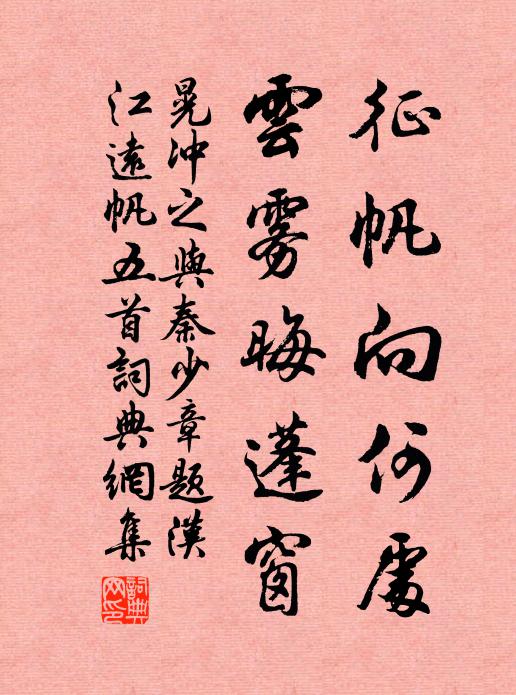 征帆向何處
雲雾晦蓬窗
晁冲之與秦少章題漢
江遠帆五首詞典網集
詞典网印